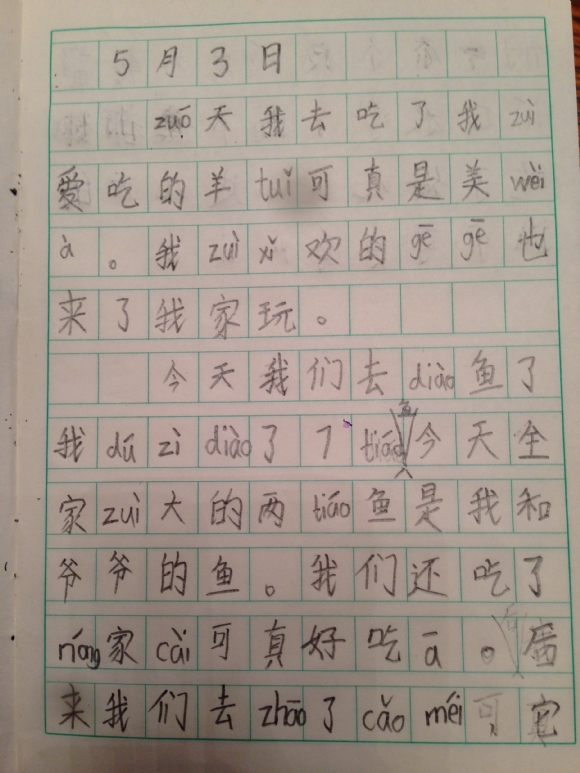 5月3日
zuō天我去吃了我zuì
爱吃的羊tuǐ可真是美wèi
à。我zuìxǐ欢的gēgē也
来了我家玩。
今天我们去diào鱼了
我dúzìdiào了7tiáo鱼今天全
家zuì大的两tiáo鱼是我和
爷爷的鱼。我们还吃了
nóng家cài可真好吃ā。
来我们去zhāo了cǎoméi可它